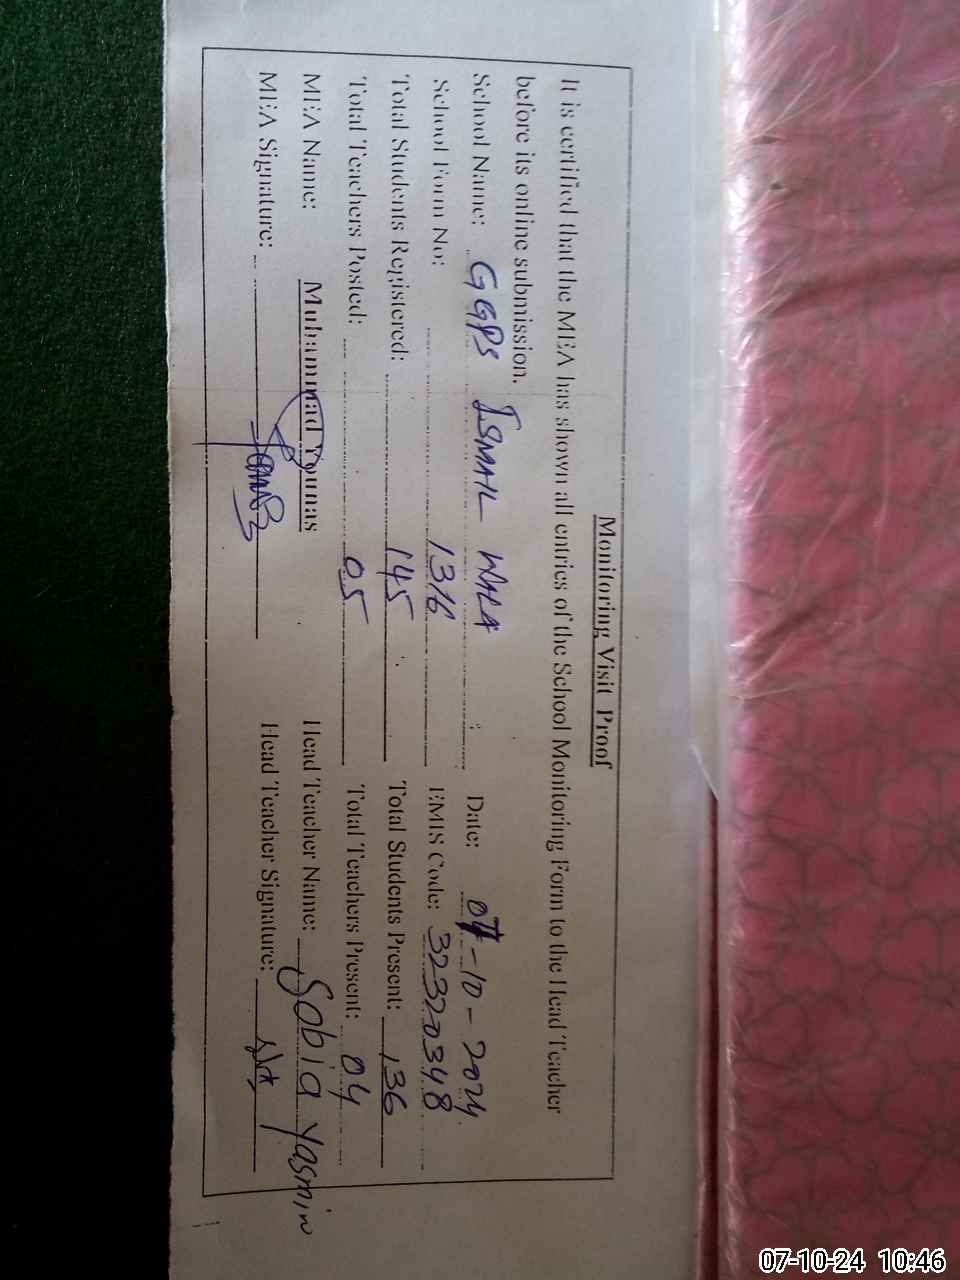 Monitoring Visit Proof
It is certified that the MEA has shown all entries of the School Monitoring Form to the Head Teacher
before its online submission.
School Name: GGPS ISMAIL WALA Date: 07-10-2024
School Form No: 1316 EMIS Code: 32320348
Total Students Registered: 145 Total Students Present: 136
Total Teachers Posted: 05 Total Teachers Present: 04
MEA Name: Muhammad Younas Head Teacher Name: Sobia Yasmin
MEA Signature: Head Teacher Signature:
07-10-24 10:46